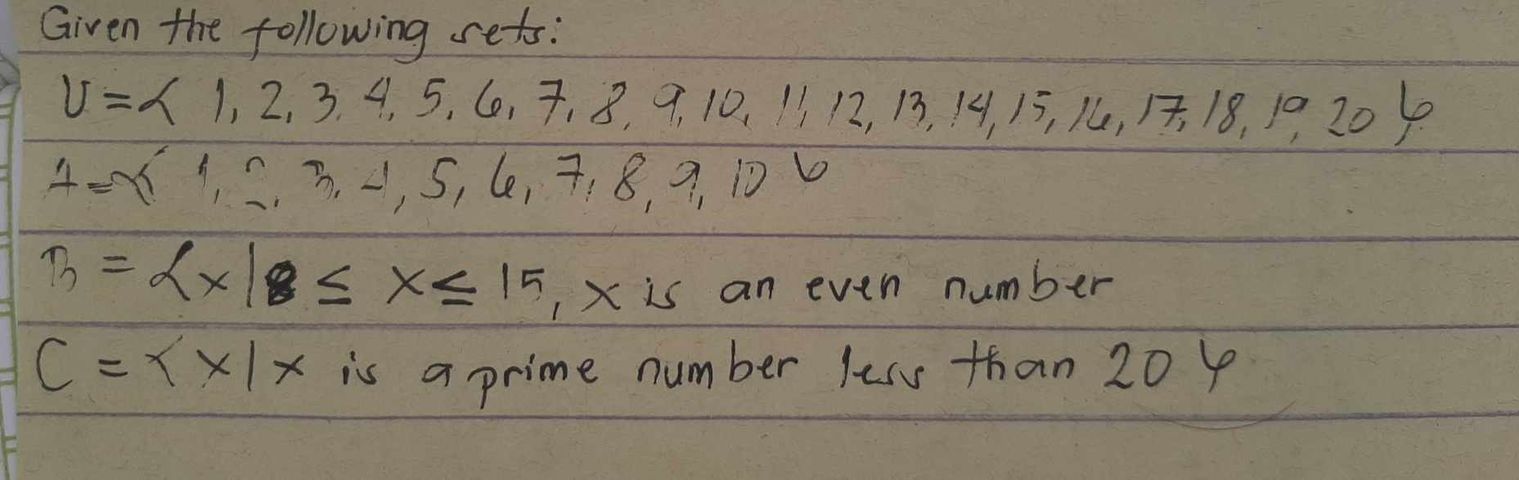 Given the following sets:
U = { 1, 2, 3, 4, 5, 6, 7, 8, 9, 10, 11, 12, 13, 14, 15, 16, 17, 18, 19, 20 }
A = { 1, 2, 3, 4, 5, 6, 7, 8, 9, 10 }
B = { x | 8 ≤ x ≤ 15, x is an even number
C = { x | x is a prime number less than 20 }